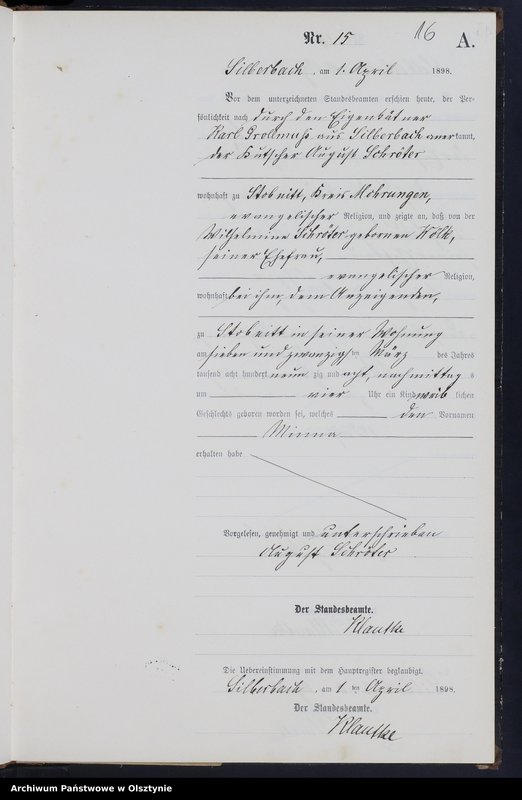 16
Nr. 15
A.
Silberbach, am 1. April 1898.
Vor dem unterzeichneten Standesbeamten erschien heute, der Per-
sönlichkeit nach durch den Eigenkätner
Karl Grollmuss aus Silberbach anerkannt,
der Kutscher August Schröter
wohnhaft zu Stobnitt, Kreis Mohrungen,
evangelischer Religion, und zeigte an, daß von der
Wilhelmine Schröter geborenen Kölk,
seiner Ehefrau,
evangelischer Religion,
wohnhaft bei ihm, dem Anzeigenden,
zu Stobnitt in seiner Wohnung
am sieben und zwanzigsten März des Jahres
tausend acht hundert neunzig und acht, nachmittags
um vier Uhr ein Kind weiblichen
Geschlechts geboren worden sei, welches den Vornamen
Minna
erhalten habe
Vorgelesen, genehmigt und unterschrieben
August Schröter
Der Standesbeamte.
Klautke
Die Uebereinstimmung mit dem Hauptregister beglaubigt.
Silberbach, am 1ten April 1898.
Der Standesbeamte.
Klautke
Archiwum Państwowe w Olsztynie